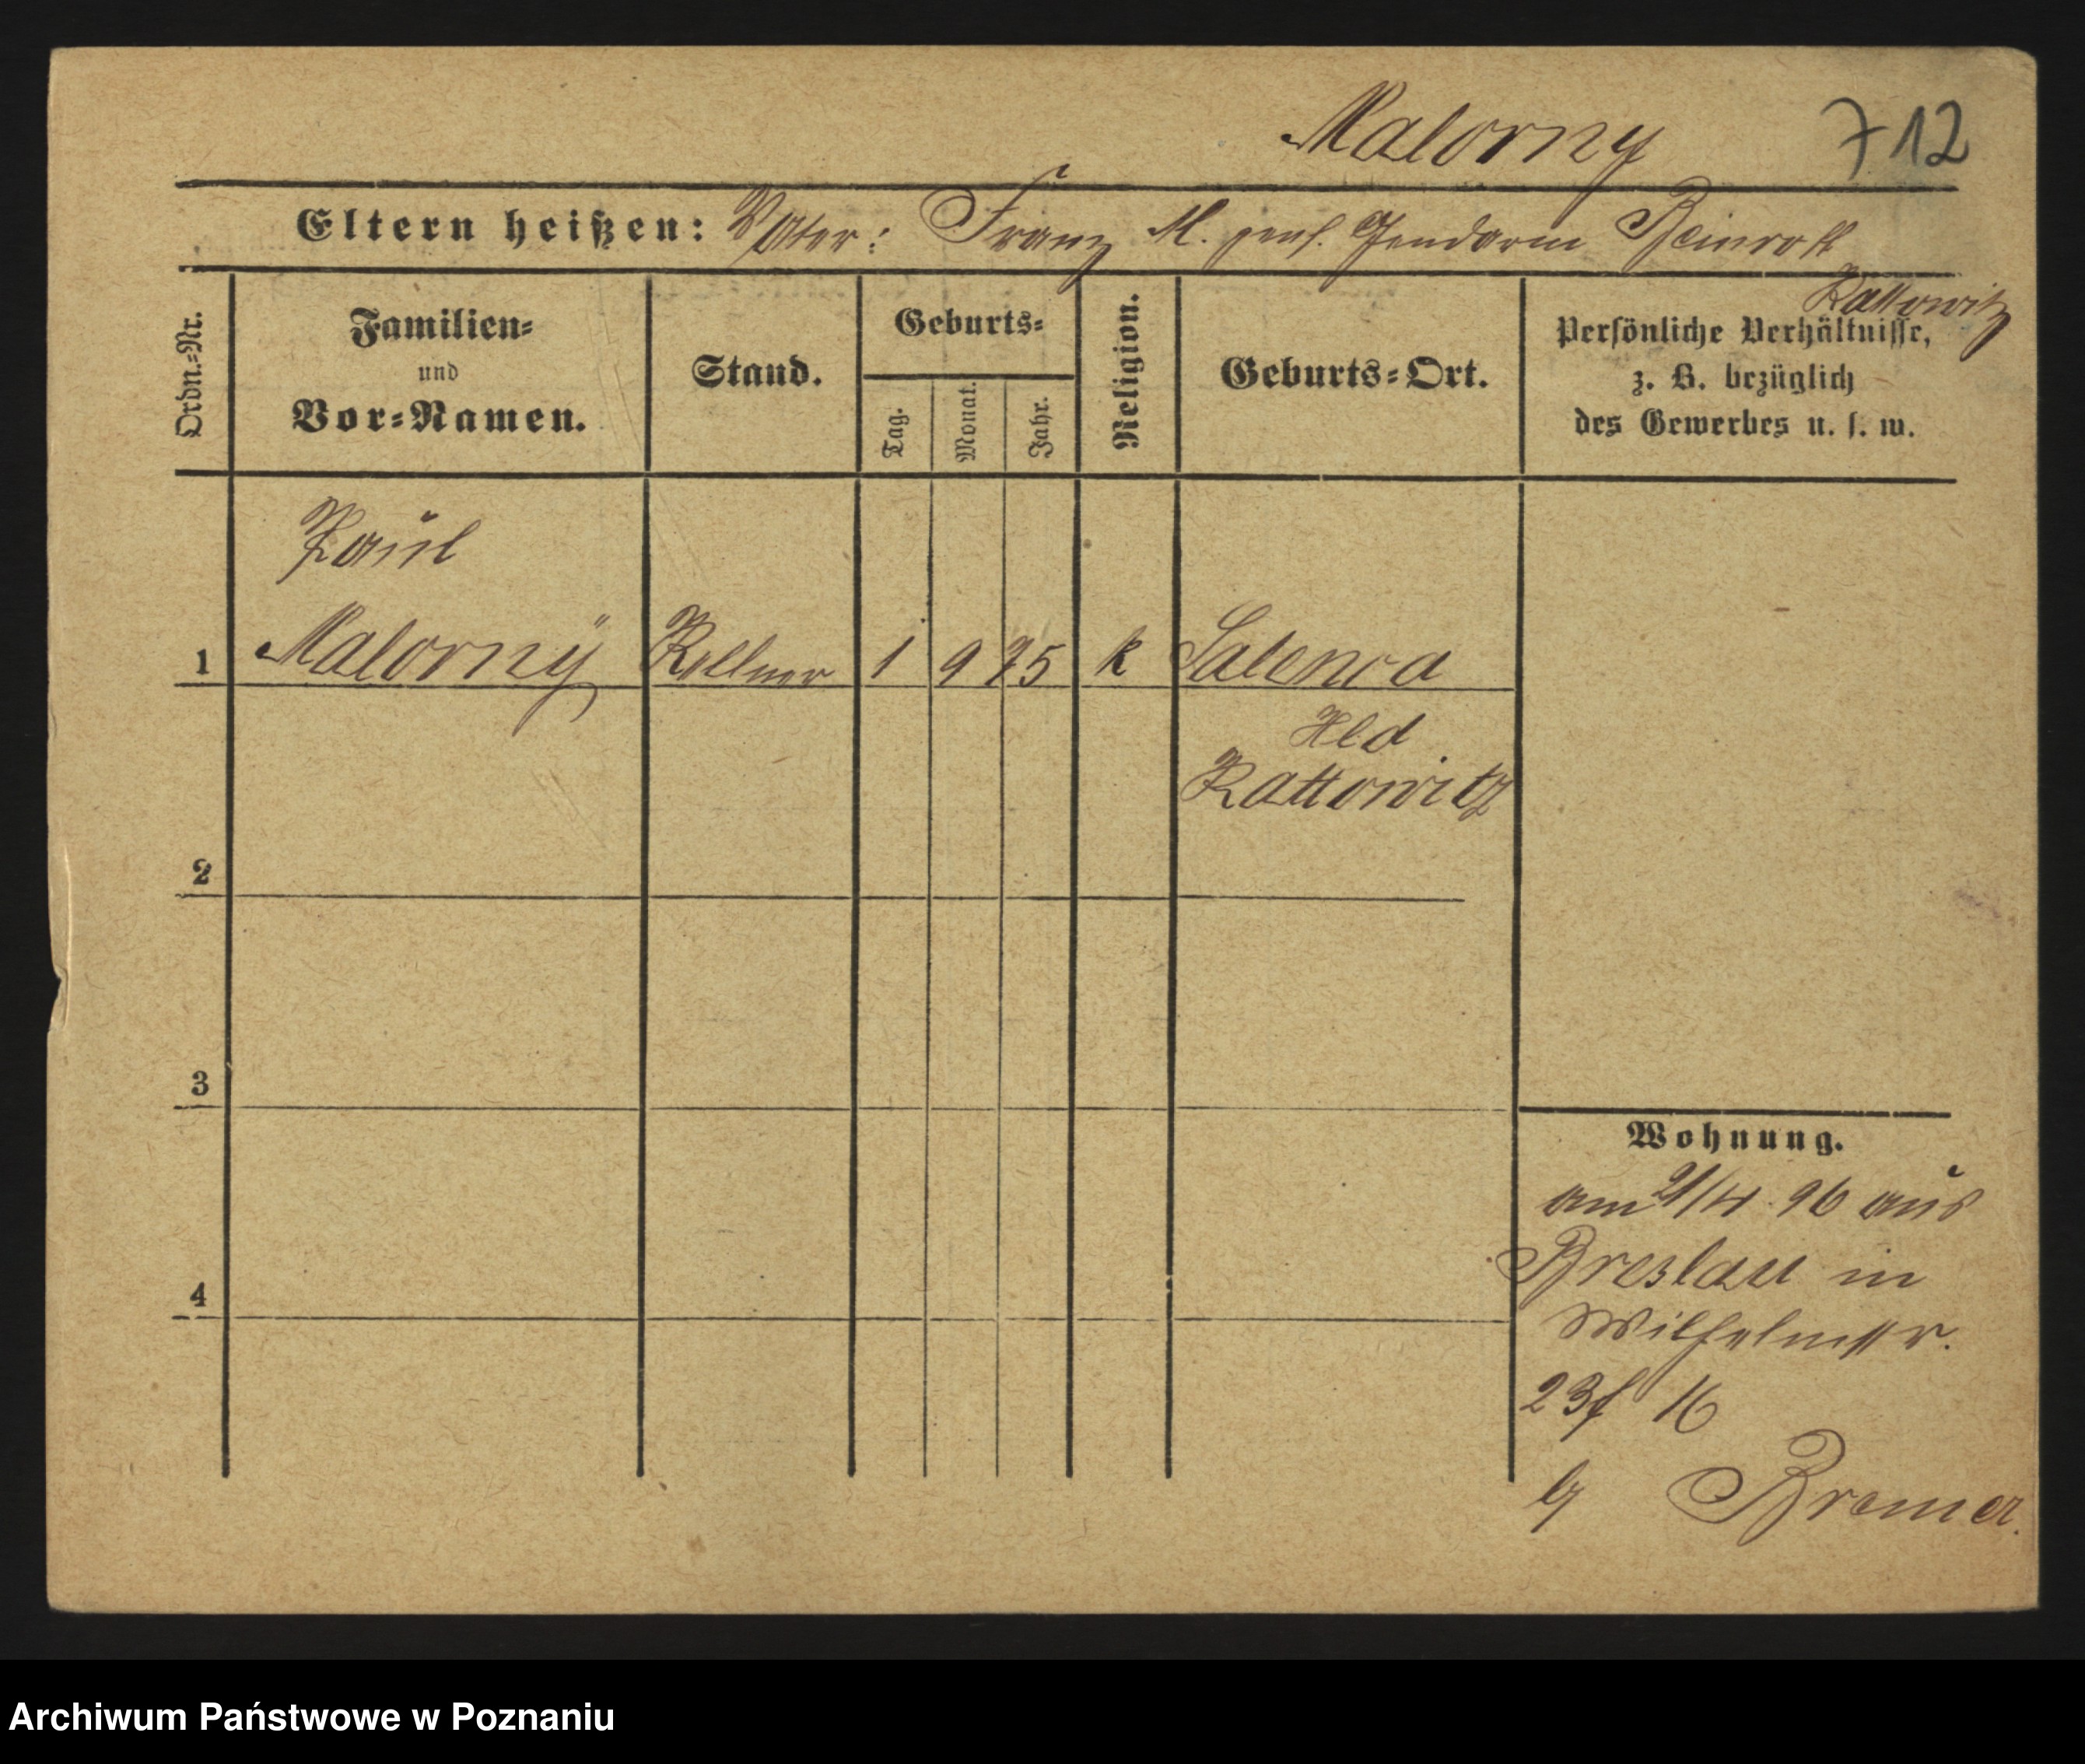 Malorny 712
Eltern heißen: Vater: Franz M. pens. Gendarm
Kattowitz
Ordn.=Nr.
Familien=
und
Vor=Namen.
Stand.
Geburts=
Tag.
Monat.
Jahr.
Religion.
Geburts=Ort.
Persönliche Verhältnisse,
z. B. bezüglich
des Gewerbes u. s. w.
Paul
1 Malorny Kellner 1 9 75 k
Kattowitz
2
3
4
Wohnung.
am 21/4. 96 aus
Breslau in
Wilhelmstr.
23 16
b/ Bremer.
Archiwum Państwowe w Poznaniu